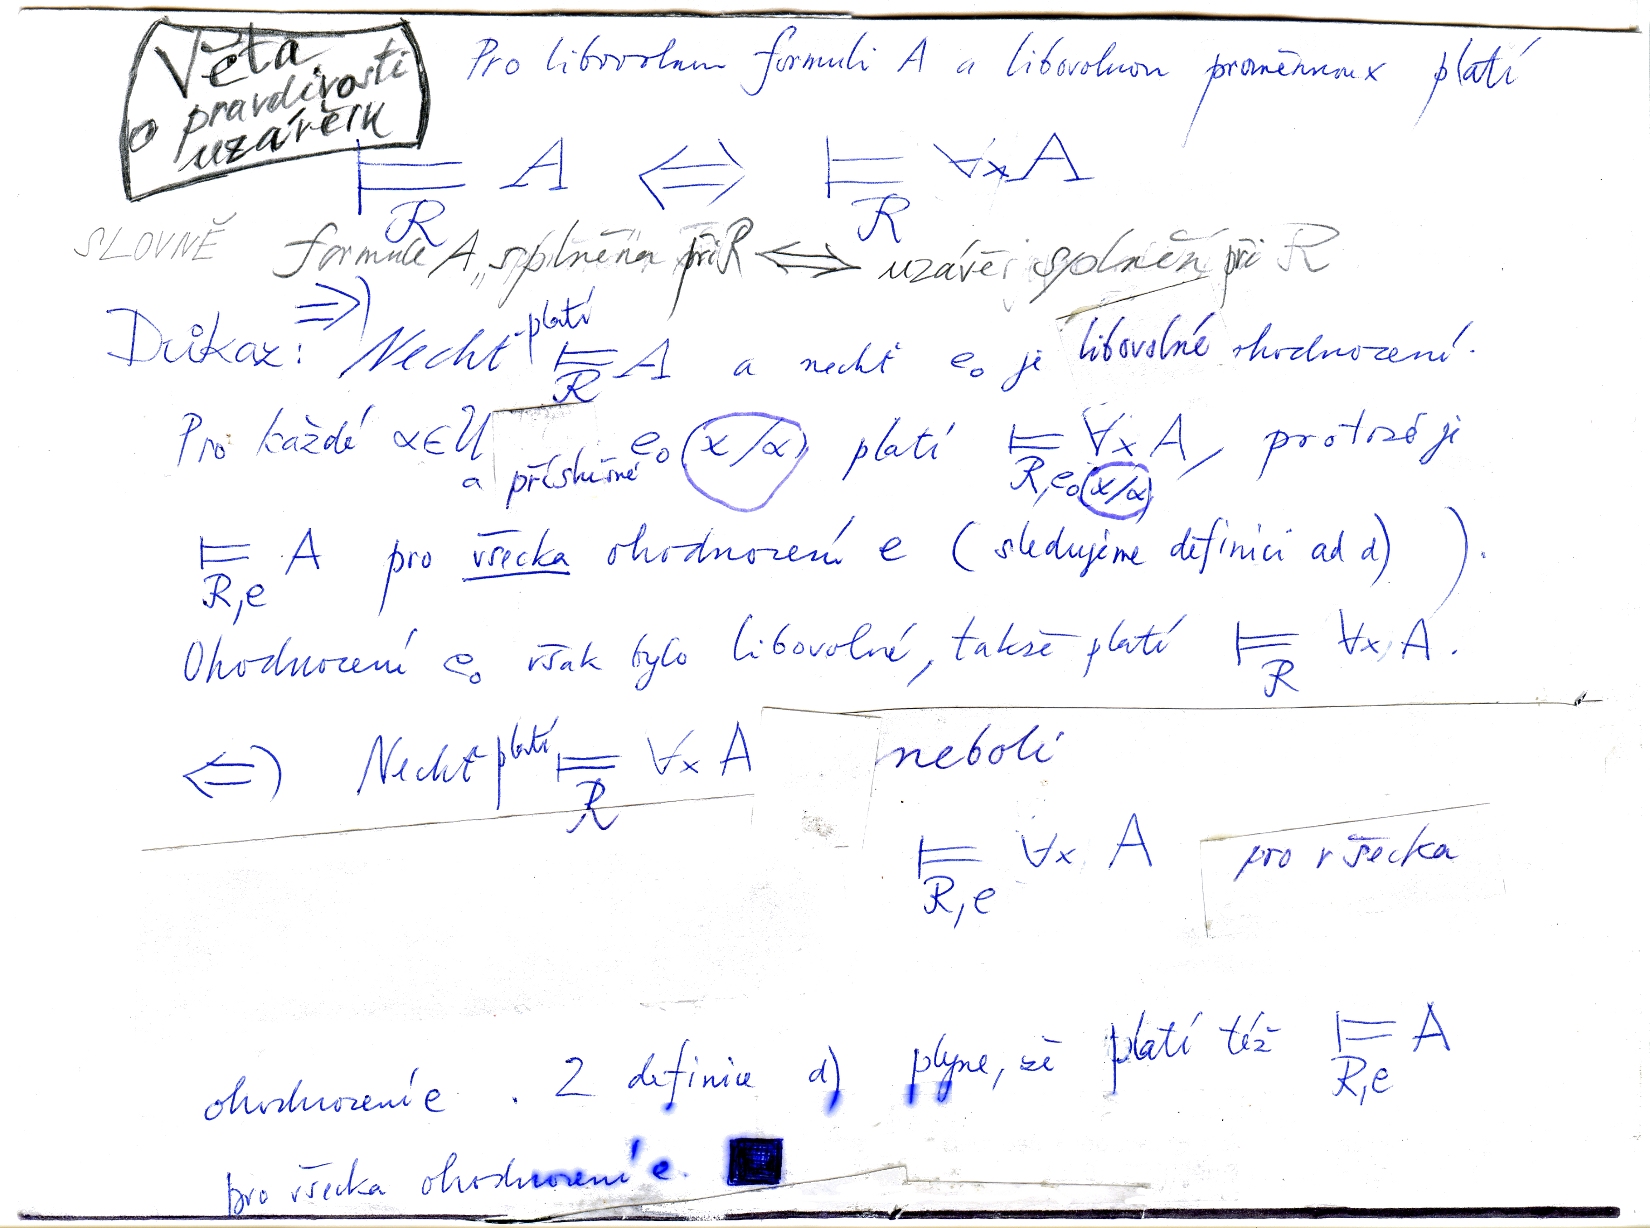 Věta
o pravdivosti
uzávěru
Pro libovolnou formuli A a libovolnou proměnnou x platí
⊨_R A ⇔ ⊨_R ∀x A
SLOVNĚ formule A splněna při R ⇔ uzávěr splněn při R
Důkaz: ⇒) Nechť platí ⊨_R A a nechť e₀ je libovolné ohodnocení.
Pro každé α∈U a příslušné e₀(x/α) platí ⊨_R,e₀(x/α) ∀x A, protože je
⊨_R,e A pro všecka ohodnocení e (sledujeme definici ad d) ).
Ohodnocení e₀ však bylo libovolné, takže platí ⊨_R ∀x A.
⇐) Nechť platí ⊨_R ∀x A neboli
⊨_R,e ∀x A pro všecka
ohodnocení e . Z definice d) plyne, že platí též ⊨_R,e A
pro všecka ohodnocení e. ■